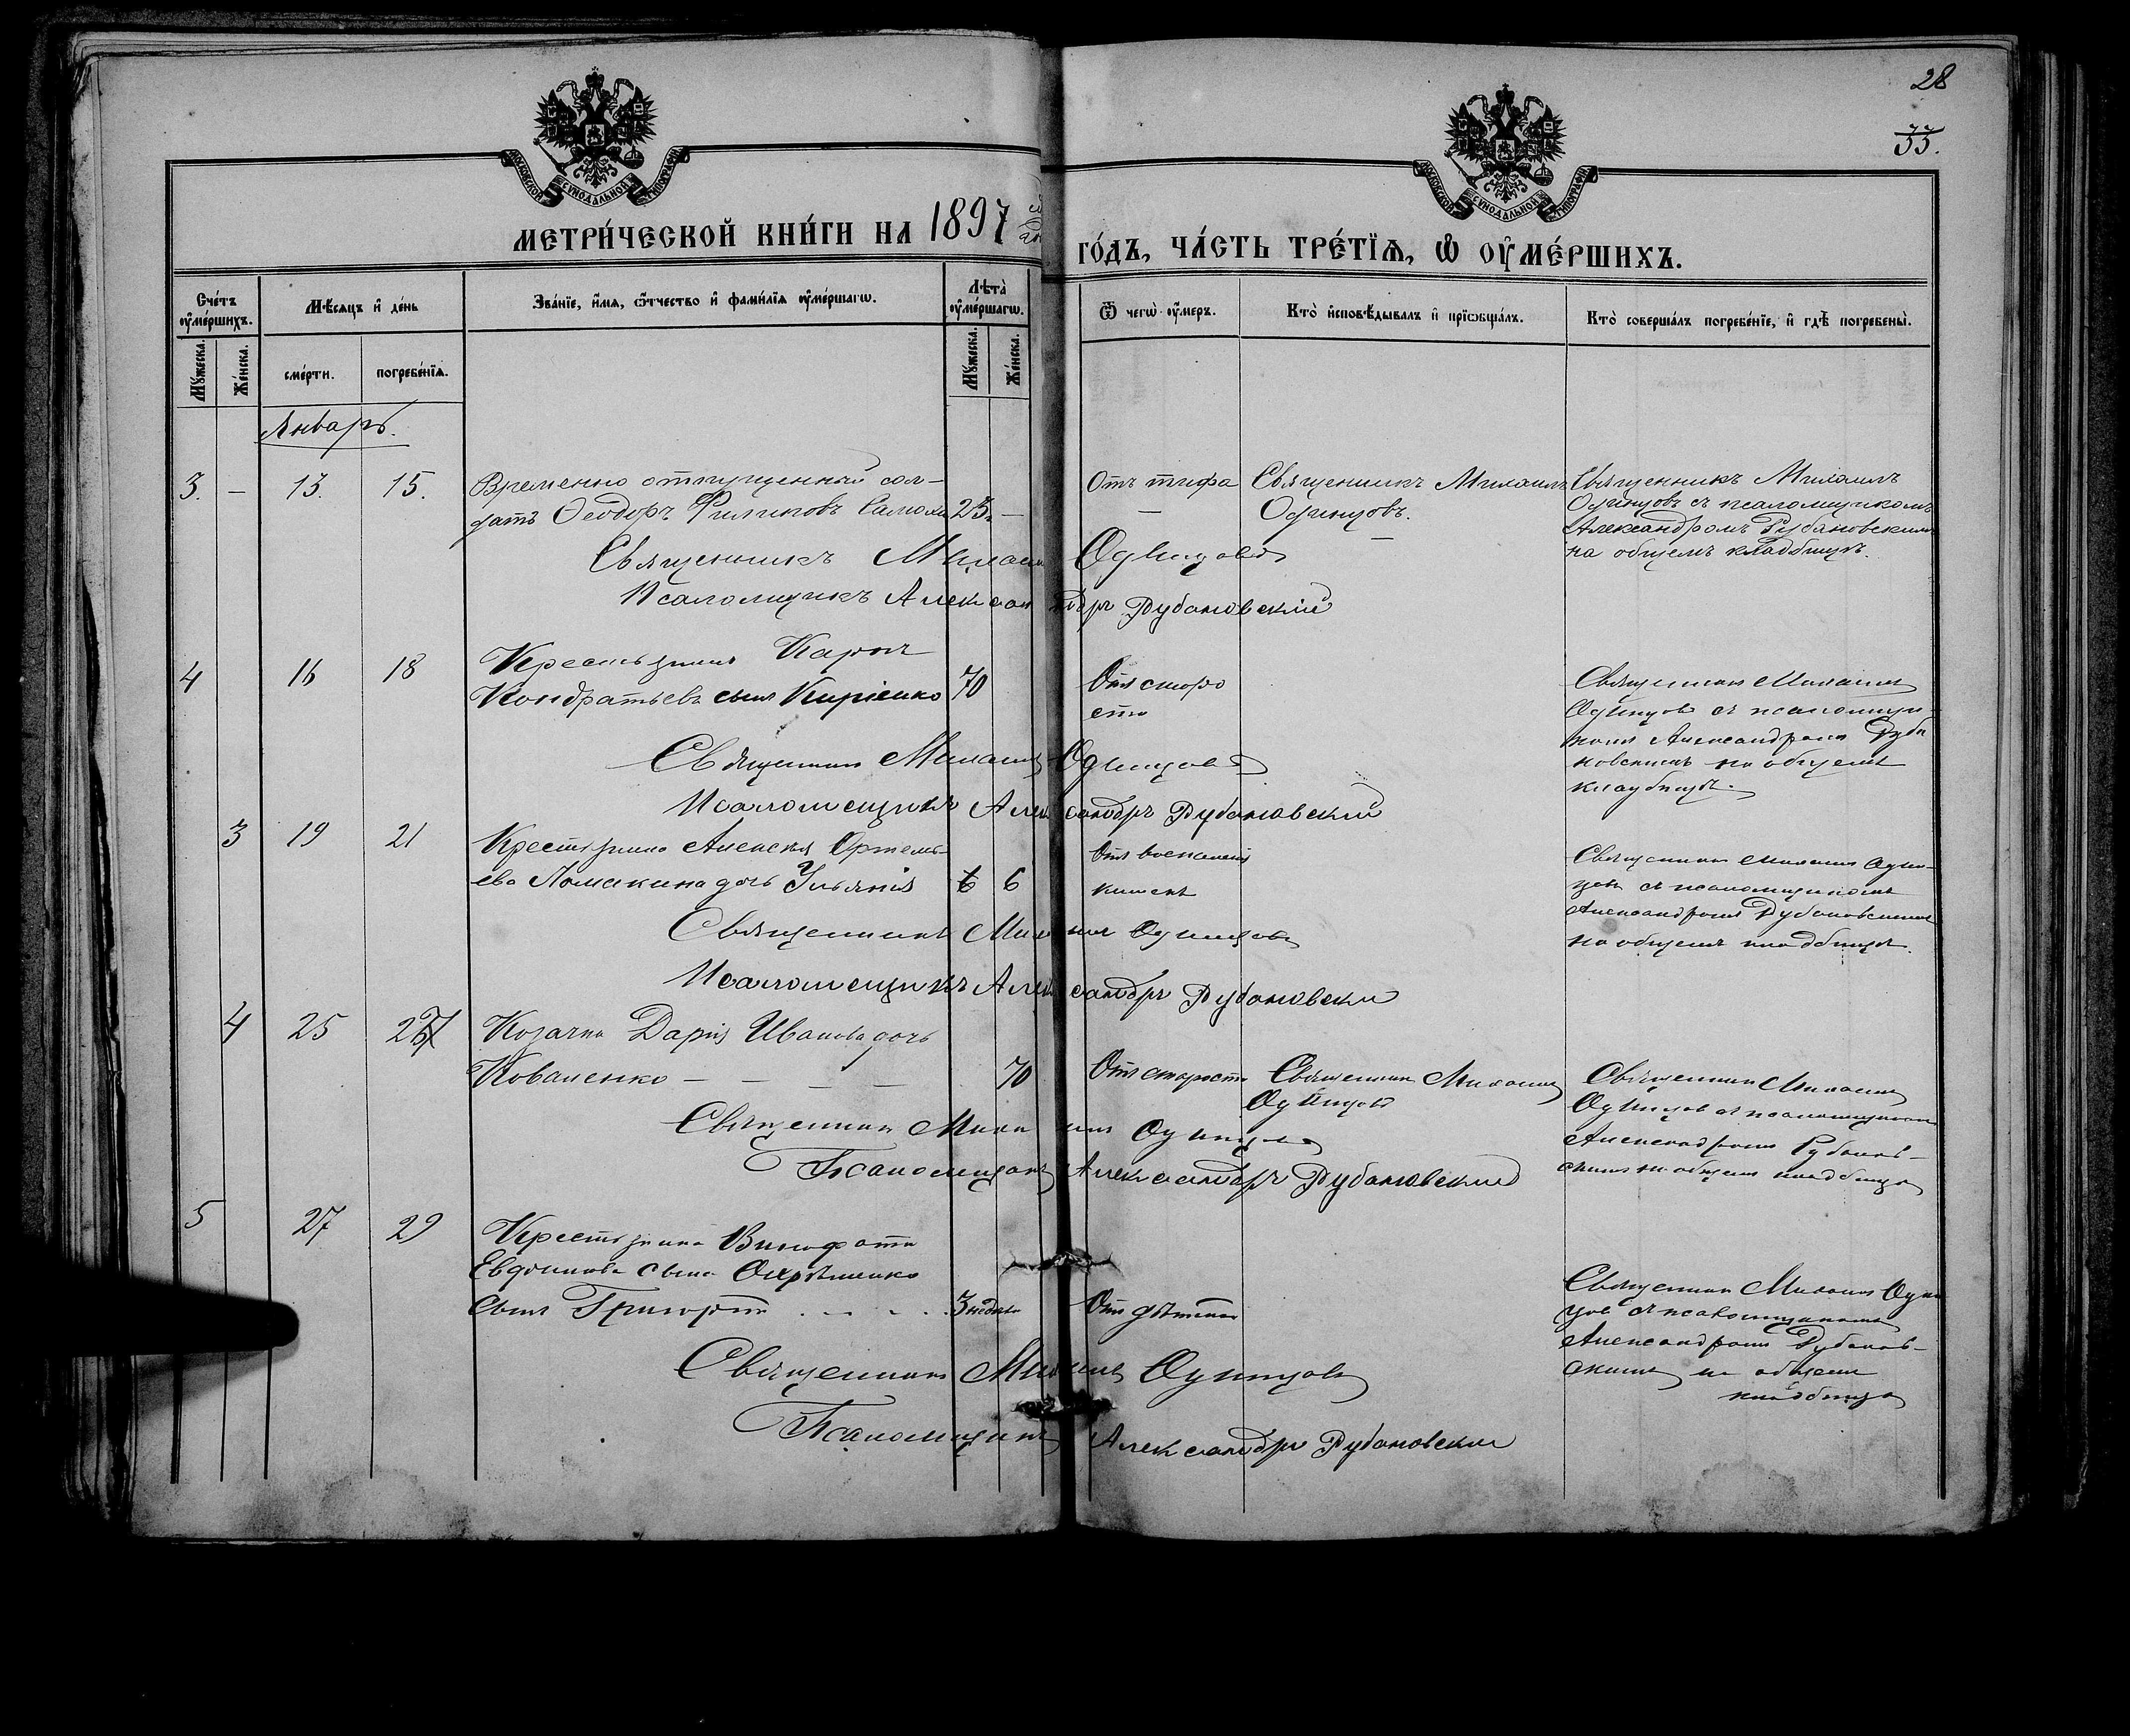 28
33.
МОСКОВСКОЙ СѴНОДАЛЬНОЙ ТИПОГРАФІИ
МОСКОВСКОЙ СѴНОДАЛЬНОЙ ТИПОГРАФІИ
МЕТРИ́ЧЕСКОЙ КНИ́ГИ НА 1897
ГО́ДЪ, ЧА́СТЬ ТРЕ́ТІѦ, Ѡ ОУ҆МЕ́РШИХЪ.
Сче́тъ оу҆ме́ршихъ.
Мꙋ́жеска.
Же́нска.
Мѣ́сяцъ и҆ де́нь
сме́рти.
погребе́нїѧ.
Зва́нїе, и҆́мѧ, ѻ҆́тчество и҆ фами́лїѧ оу҆ме́ршагѡ.
Лѣ́та оу҆ме́ршагѡ.
Мꙋ́жеска.
Же́нска.
Ѿ чегѡ̀ оу҆́меръ.
Кто̀ и҆сповѣ́дывалъ и҆ прїѡбща́лъ.
Кто̀ соверша́лъ погребе́нїе, и҆ гдѣ̀ погребены̀.
Январь.
3. — 13. 15. Временно отпущенный сол-
датъ Ѳеодоръ Филиповъ 23. —
Отъ тифа
—
Священникъ Михаилъ
Одинцовъ.
—
Священникъ Михаилъ
Одинцовъ съ псаломщикомъ
Александромъ Рубановскимъ
на общемъ кладбищѣ.
Священникъ Михаилъ Одинцовъ
Псаломщикъ Александръ Рубановскій
4 16 18 Крестьянинъ Карпъ
Кондратьевъ сынъ Киріенко 70
Отъ старо
сти
Священникъ Михаилъ
Одинцовъ съ псаломщи-
комъ Александромъ Руба
новскимъ на общемъ
кладбищѣ.
Священникъ Михаилъ Одинцовъ
Псаломщикъ Александръ Рубановский
3 19 21 Крестьянина Алексѣя Артемь-
ева Ломакина дочь Ульянія 6 6
Отъ воспаленія
кишекъ
Священникъ Михаилъ Один-
цовъ съ псаломщикомъ
Александромъ Рубановскимъ
на общемъ кладбищѣ.
Священникъ Михаилъ Одинцовъ
Псаломщикъ Александръ Рубановски
4 25 27 Козачка Дарія Иванова дочь
Коваленко — — — — 70
Отъ старости
Священникъ Михаилъ
Одинцовъ
Священникъ Михаилъ
Одинцовъ съ псаломщикомъ
Александромъ Рубанов-
скимъ на общемъ кладбищѣ
Священникъ Михаилъ Одинцовъ
Псаломщикъ Александръ Рубановский
5 27 29 Крестьянина
сына
сынъ Григорій 3 недѣли
Отъ
Священникъ Михаилъ Один
цовъ съ псаломщикомъ
Александромъ Рубанов-
скимъ на общемъ
кладбищѣ
Священникъ Михаилъ Одинцовъ
Псаломщикъ Александръ Рубановски